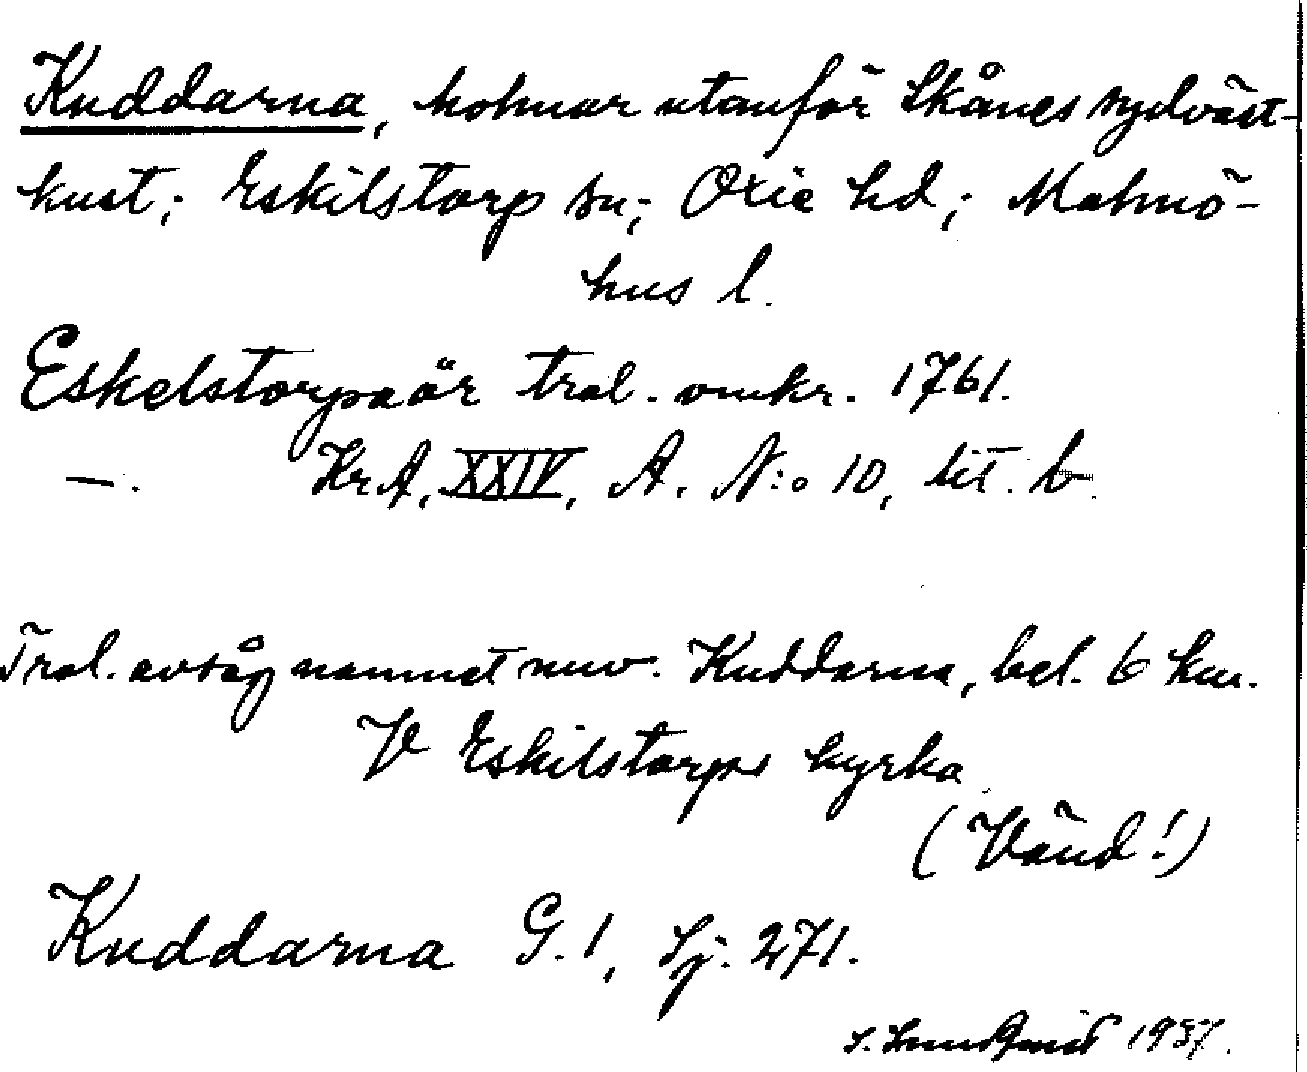 Kuddarna, holmar utanför Skånes sydväst-
kust; Eskilstorp sn; Oxie hd; Malmö-
hus l.
Eskelstorpaör trol. omkr. 1761.
—. KrA, XXIV, A. N:o 10, lit. b.
Trol. avsåg namnet nuv. Kuddarna, bel. 6 km.
V Eskilstorps kyrka
(Vänd!)
Kuddarna G. 1, Sj. 271.
1937.